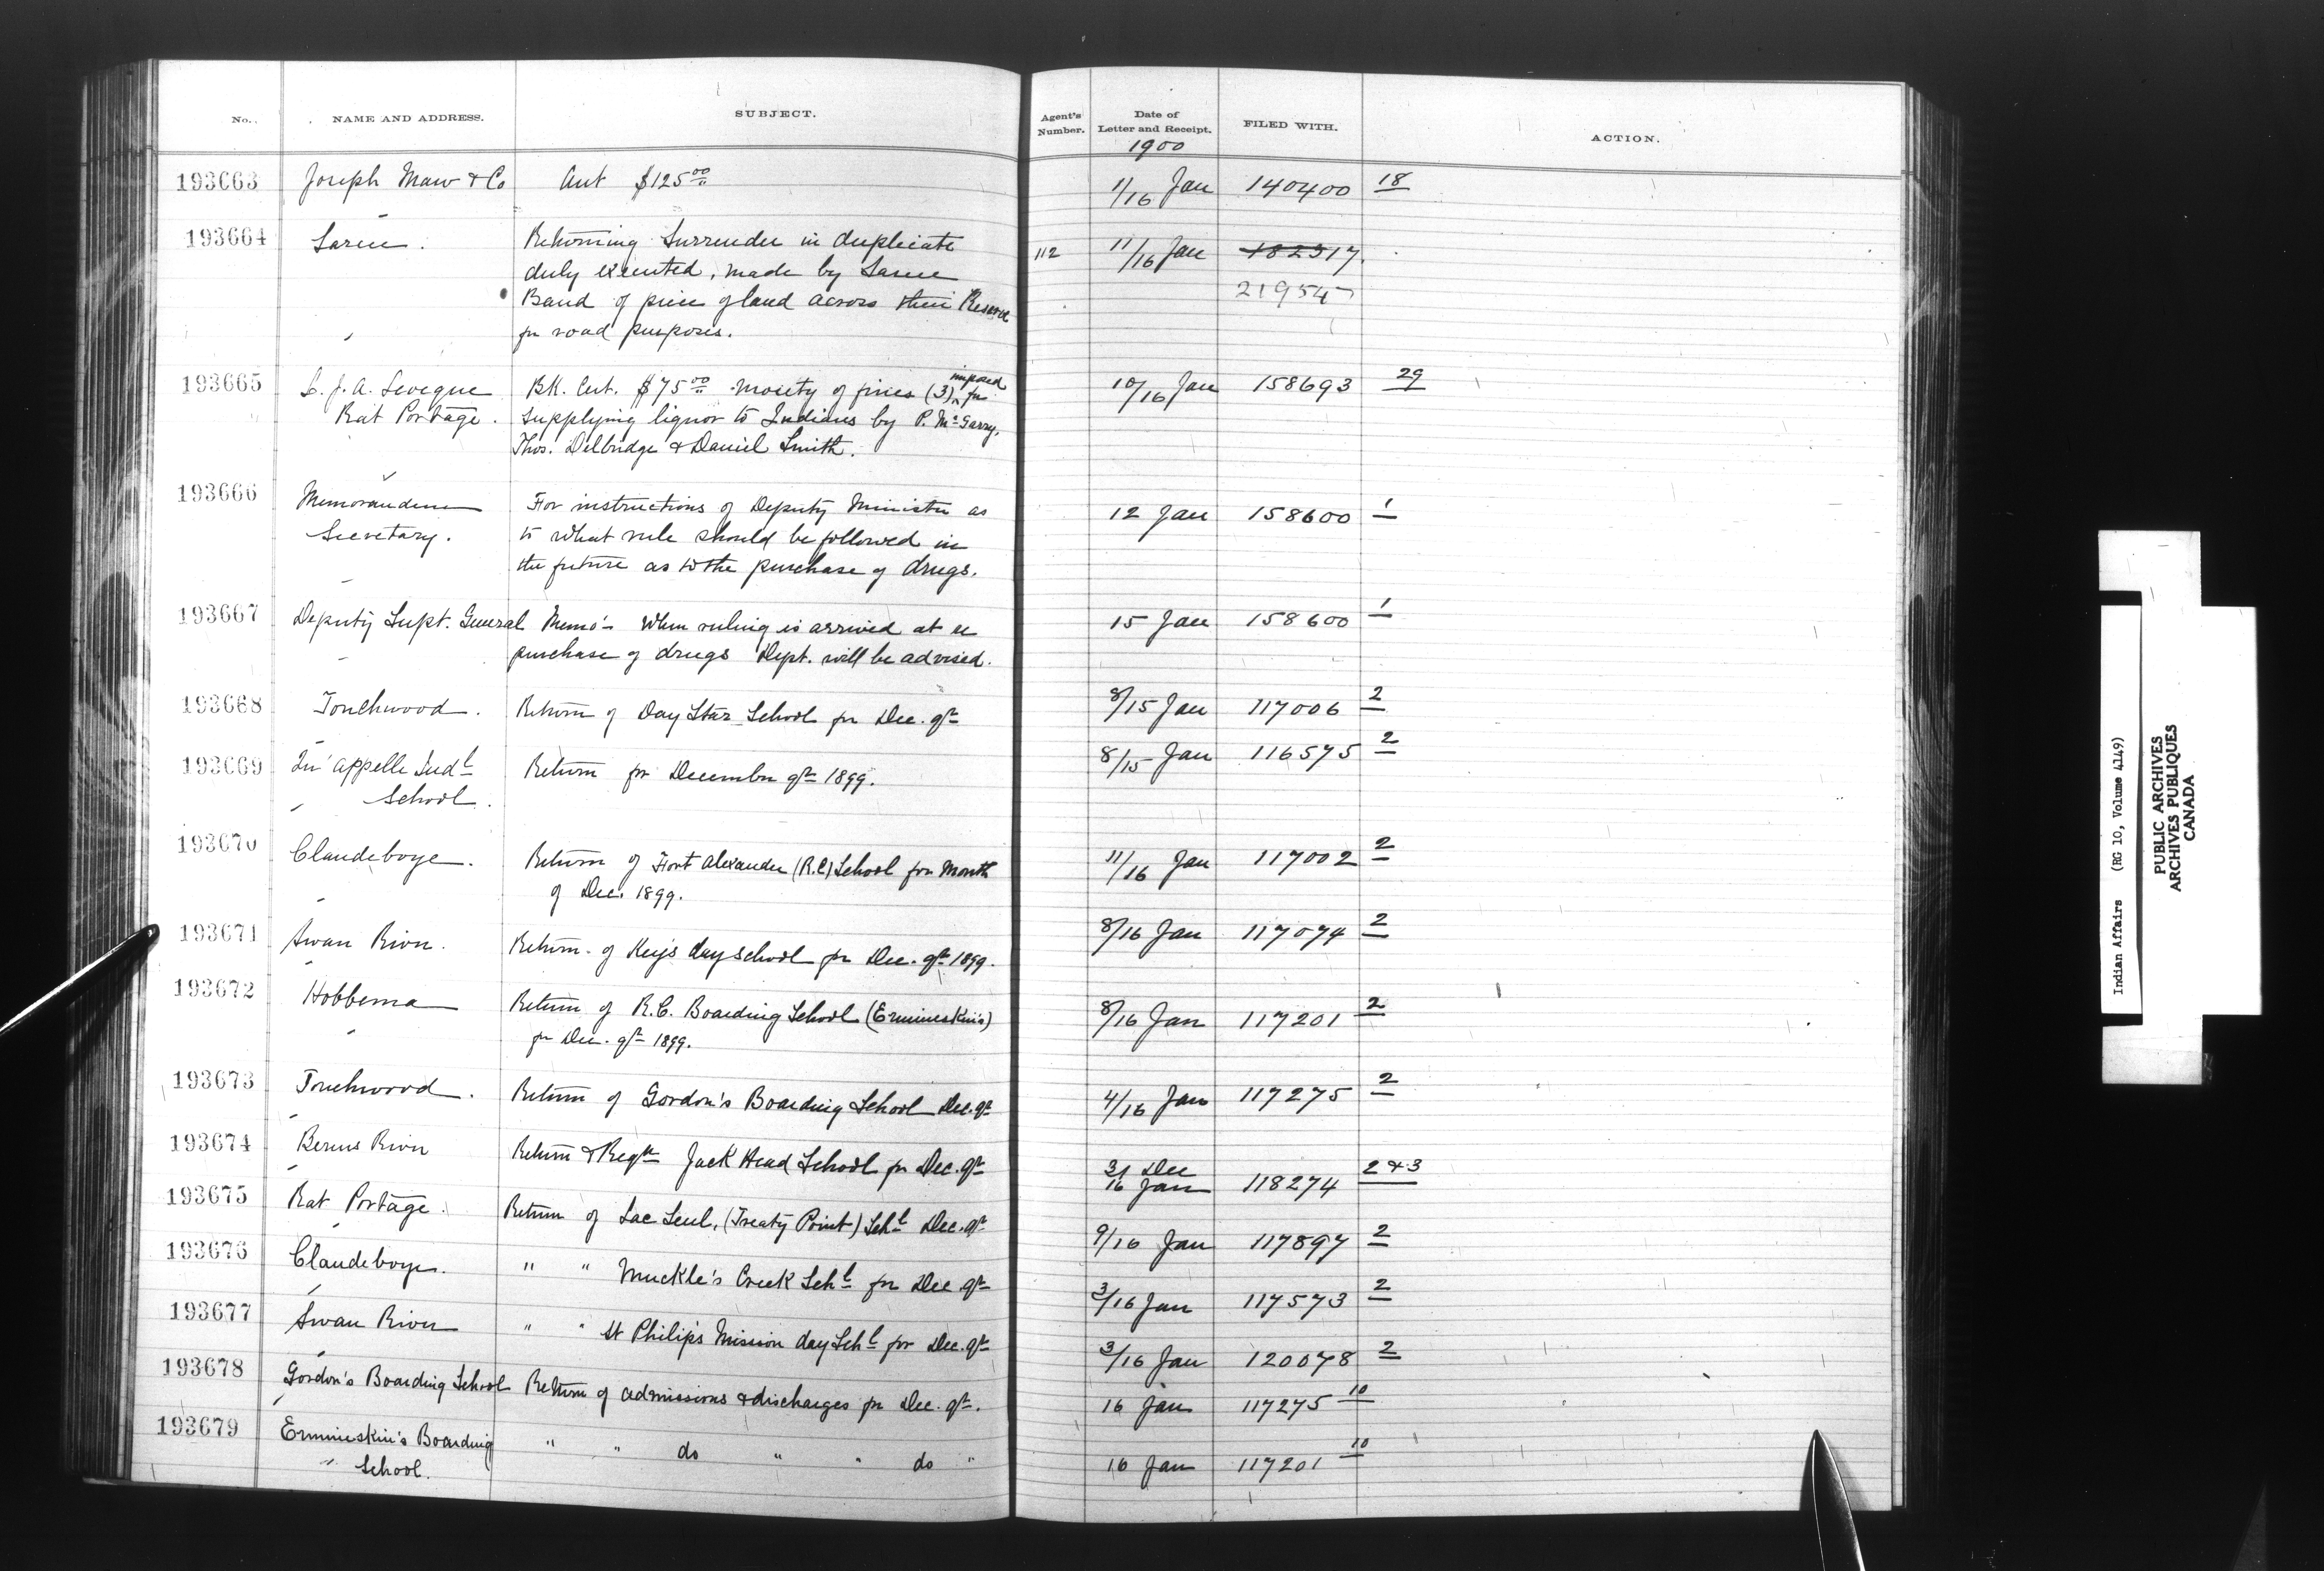 No. NAME AND ADDRESS. SUBJECT. Agent's Number. Date of Letter and Receipt. FILED WITH. ACTION.
1900
193663 Joseph Maw & Co Acct $125.00 11/16 Jan 140400 18
193664 Sarcee. Returning Surrender in duplicate 112 11/16 Jan 182317.
duly executed, made by Sarcee 21954
Band of piece of land across their Reserve
for road purposes.
193665 L. J. A. Leveque BK. Cert. $75.00 moiety of fines (3) imposed for 10/16 Jan 158693 29
Rat Portage. supplying liquor to Indians by P. McGarry,
Thos. Delbridge & Daniel Smith.
193666 Memorandum For instructions of Deputy Minister as 12 Jan 158600 1
Secretary. to what rule should be followed in
the future as to the purchase of drugs.
193667 Deputy Supt. General Memo- When ruling is arrived at re 15 Jan 158600 1
purchase of drugs Dept. will be advised.
193668 Touchwood. Return of Day Star School for Dec. qr 8/15 Jan 117006 2
193669 Qu'appelle Indl Return for December qr 1899. 8/15 Jan 116575 2
School.
193670 Clandeboye. Return of Fort Alexander (R.C) School for Month 11/16 Jan 117002 2
of Dec. 1899.
193671 Swan River. Return of Key's day school for Dec. qr 1899. 8/16 Jan 117074 2
193672 Hobbema Return of R.C. Boarding School (Ermineskin's) 8/16 Jan 117201 2
for Dec. qr 1899.
193673 Touchwood. Return of Gordon's Boarding School Dec. qr 4/16 Jan 117275 2
193674 Berens River Return & Reqn Jack Head School for Dec. qr 31 Dec 16 Jan 118274 2 & 3
193675 Rat Portage. Return of Lac Seul, (Treaty Point) Schl Dec. qr 9/16 Jan 117897 2
193676 Clandeboye. " " Muckle's Creek Schl for Dec. qr 3/16 Jan 117573 2
193677 Swan River " " St Philip's Mission day Schl for Dec. qr 3/16 Jan 120078 2
193678 Gordon's Boarding School Return of admissions & discharges for Dec. qr. 16 Jan 117275 10
193679 Ermineskin's Boarding " " do " " do " 16 Jan 117201 10
" School.
Indian Affairs (RG 10, Volume 4149)
PUBLIC ARCHIVES
ARCHIVES PUBLIQUES
CANADA